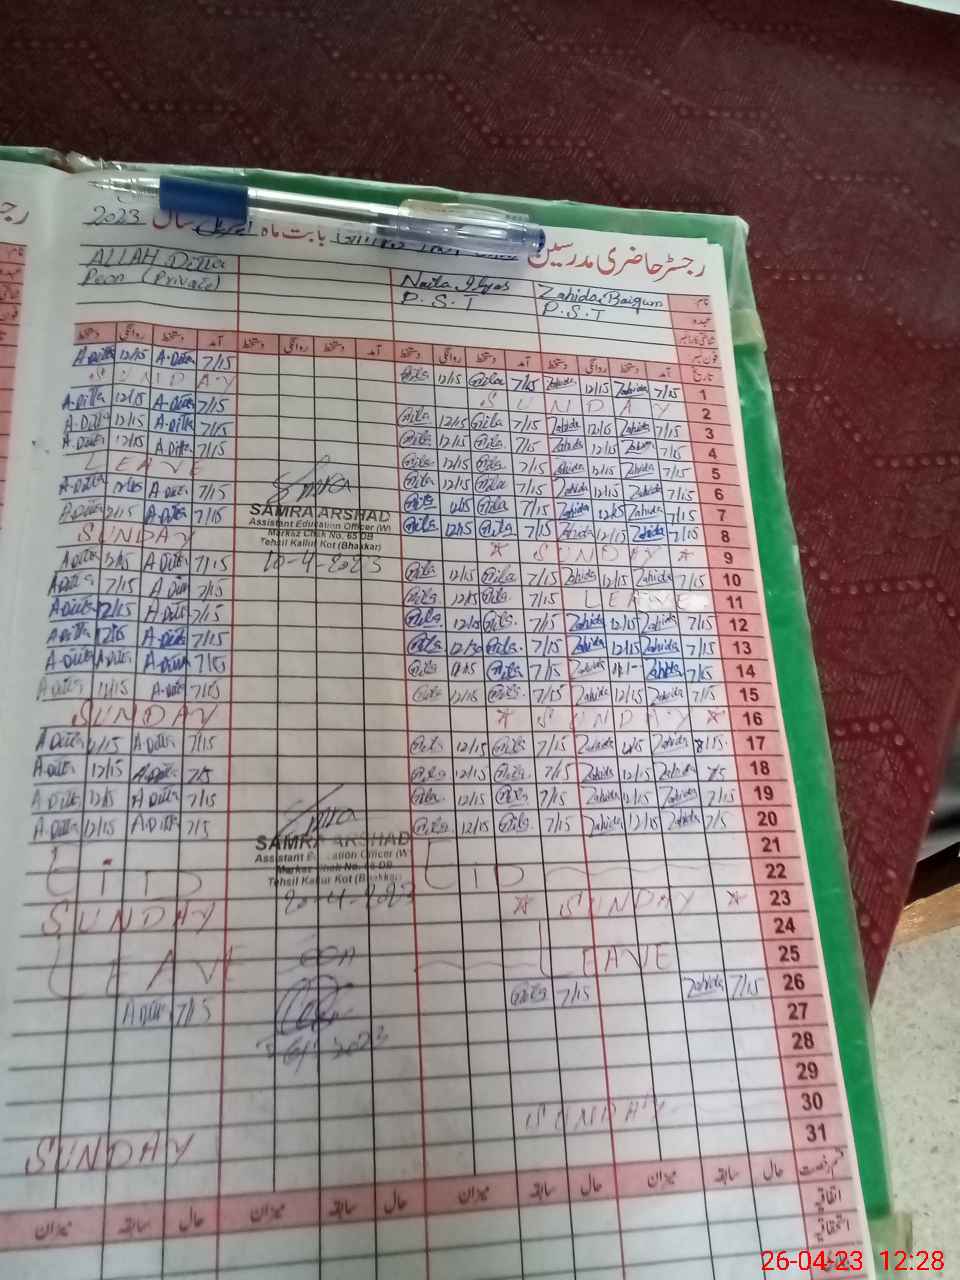 رجسٹر حاضری مدرسین
بابت ماہ اپریل سال 2023
ALLAH Ditta
Peon (Private)
Naila Ilyas
P.S.T
Zahida Baigum
P.S.T
نام
عہدہ
دستخط روانگی دستخط آمد دستخط روانگی دستخط آمد دستخط روانگی دستخط آمد دستخط روانگی دستخط آمد تاریخ
A.Ditta 12/15 A.Ditta 7/15 12/15 7/15 Zahida 12/15 Zahida 7/15 1
SUNDAY SUNDAY 2
A.Ditta 12/15 A.Ditta 7/15 12/15 7/15 Zahida 12/15 Zahida 7/15 3
A.Ditta 12/15 A.Ditta 7/15 12/15 7/15 Zahida 12/15 Zahida 7/15 4
A.Ditta 12/15 A.Ditta 7/15 12/15 7/15 Zahida 12/15 Zahida 7/15 5
LEAVE 12/15 7/15 Zahida 12/15 Zahida 7/15 6
A.Ditta 12/15 A.Ditta 7/15 12/15 7/15 Zahida 12/15 Zahida 7/15 7
A.Ditta 12/15 A.Ditta 7/15 12/15 7/15 Zahida 12/15 Zahida 7/15 8
SUNDAY * SUNDAY * 9
A.Ditta 12/15 A.Ditta 7/15 12/15 7/15 Zahida 12/15 Zahida 7/15 10
A.Ditta 7/15 A.Ditta 7/15 12/15 7/15 LEAVE 11
A.Ditta 12/15 A.Ditta 7/15 12/15 7/15 Zahida 12/15 Zahida 7/15 12
A.Ditta 12/15 A.Ditta 7/15 12/30 7/15 Zahida 12/15 Zahida 7/15 13
A.Ditta A.Ditta 7/15 7/15 Zahida Zahida 7/15 14
A.Ditta 12/15 A.Ditta 7/15 12/15 7/15 Zahida 12/15 Zahida 7/15 15
SUNDAY * SUNDAY * 16
A.Ditta 12/15 A.Ditta 7/15 12/15 7/15 Zahida 12/15 Zahida 8/15 17
A.Ditta 12/15 A.Ditta 7/15 12/15 7/15 Zahida 12/15 Zahida 7/5 18
A.Ditta 12/15 A.Ditta 7/15 12/15 7/15 Zahida 12/15 Zahida 7/15 19
A.Ditta 12/15 A.Ditta 7/5 12/15 7/15 Zahida 12/15 Zahida 7/5 20
21
EID EID 22
SUNDAY * SUNDAY * 23
24
LEAVE LEAVE 25
A.Ditta 7/15 7/15 Zahida 7/15 26
27
28
29
SUNDAY SUNDAY 30
31
SAMRA ARSHAD
Assistant Education Officer (W)
Markaz Chak No. 65 DB
Tehsil Kallur Kot (Bhakkar)
10-4-2023
SAMRA ARSHAD
Assistant Education Officer (W)
Markaz Chak No. 65 DB
Tehsil Kallur Kot (Bhakkar)
20-4-2023
میزان سابقہ حال میزان سابقہ حال میزان سابقہ حال میزان سابقہ حال قسم رخصت
اتفاقیہ
استحقاقیہ
26-04-23 12:28